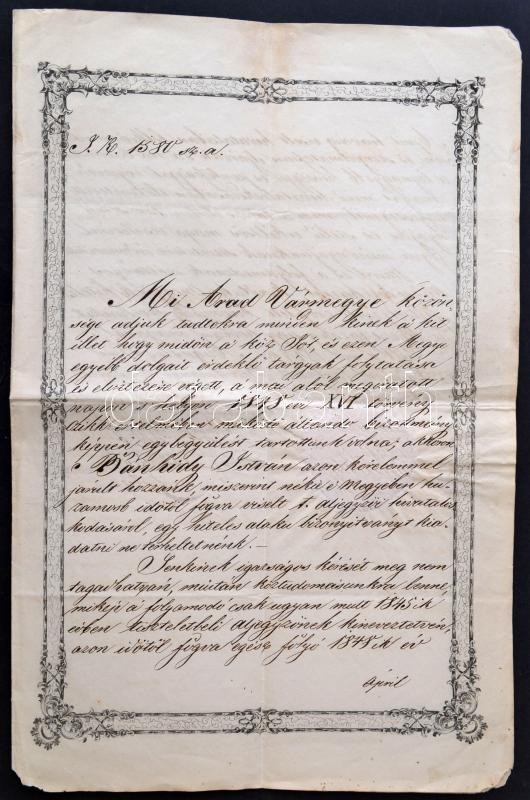 J. K. 1580 sz. a.
Mi Arad Vármegye közön-
sége adjuk tudtokra minden kinek a kit
illet hogy midőn a köz Jót, és ezen Megye
egyéb dolgait érdeklő tárgyak folytatása
és elvégzése végett, a mai alol megirtt
napon a hazai 1848 év XVI törvény
czikk értelmében működő állandó bizotmány
képpen egybegyülést tartottunk volna; akkoron
Bánhidy István azon kérelemmel
járult hozzánk, miszerint néki e Megyében hu-
zamosb időtől fogva viselt t. aljegyzői hivatalos-
kodásáról, egy hiteles alaku bizonyitványt kia-
datni ne terheltetnénk. —
Jenkinek igazságos kérését meg nem
tagadhatván, miután köztudomásunkra lenne,
mikép a folyamodó csak ugyan mult 1845ik
évben tiszteletbeli aljegyzőnek kineveztetvén,
azon időtől fogva egész folyó 1848ik év
April